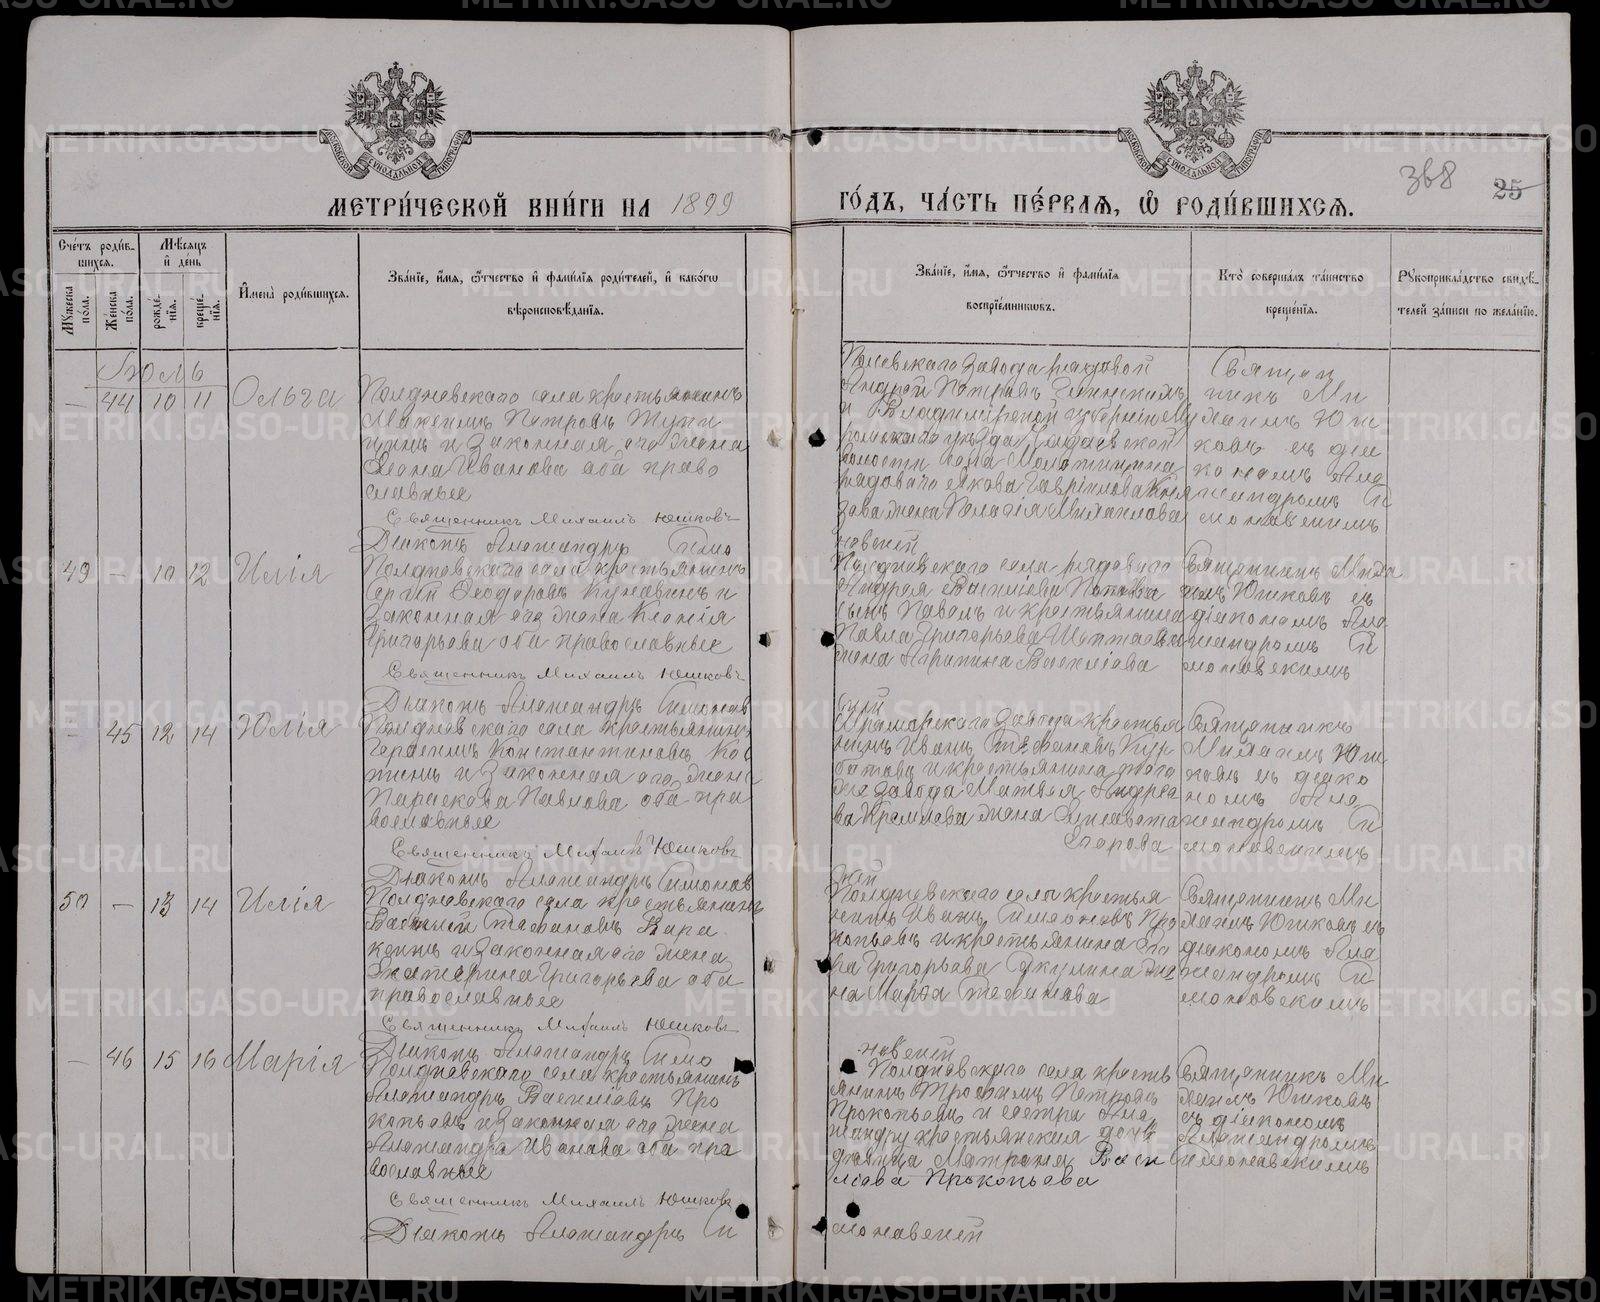 МЕТРИ́ЧЕСКОЙ КНИ́ГИ НА 1899
ГО́ДЪ, ЧА́СТЬ ПЕ́РВАЯ, Ѽ РОДИ́ВШИХСЯ.
368 25
Сче́тъ роди́в-
шихся.
Мѣсяцъ
и҆ день
Мꙋжеска
по́ла.
Же́нска
по́ла.
рожде́-
нїѧ.
креще́-
нїѧ.
И҆мена̀ роди́вшихся.
Зва́нїе, и҆́мя, ѻ҆́тчество и҆ фами́лїя роди́телей, и҆ како́гѡ
вѣроисповѣ́данїя.
Зва́нїе, и҆́мя, ѻ҆́тчество и҆ фами́лїя
воспрїе́мниковъ.
Кто̀ соверша́лъ та́инство
креще́нїя.
Рꙋкоприкла́дство свидѣ́-
телей за́писи по жела́нїю.
Іюль
— 44 10 11 Ольга
Полдневскаго села крестьянинъ
Максимъ Петровъ
и законная его жена
Иванова оба право
славные
Священникъ Михаилъ Юшковъ
Діаконъ Александръ Симо
новский
завода рядовой
Андрей Петровъ
и Владимірской губерніи
уѣзда
волости села
рядового Якова Гавріилова Кня
зева жена Пелагія Михаилова
Священ
никъ Ми
хаилъ Юш
ковъ съ діа
кономъ Але
ксандромъ Си
моновскимъ
49 — 10 12 Илія
Полдневскаго села крестьянинъ
Сергій Ѳеодоровъ и
законная его жена Ксенія
Григорьева оба православные
Священникъ Михаилъ Юшковъ
Діаконъ Александръ Симонов
скій
Полдневскаго села рядового
Андрея Василіева Попова
сынъ Павелъ и крестьянина
Павла Григорьева
жена Агрипина Василіева
Священникъ Миха
илъ Юшковъ съ
діакономъ Але
ксандромъ Си
моновскимъ
— 45 12 14 Юлія
Полдневскаго села крестьянинъ
Герасимъ Константиновъ Кос
тинъ и законная его жена
Параскева Павлова оба пра
вославные
Священникъ Михаилъ Юшковъ
Діаконъ Александръ Симонов
скій
Мраморскаго завода крестья
нинъ Иванъ Стефановъ Кур
батовъ и крестьянина того
же завода Матвея Андрее
ва жена Елисавета
Егорова
Священникъ
Михаилъ Юш
ковъ съ діако
номъ Але
ксандромъ Си
моновскимъ
50 — 13 14 Илія
Полдневскаго села крестьянинъ
Василій Стефановъ
и законная его жена
Екатерина Григорьева оба
православные
Священникъ Михаилъ Юшковъ
Діаконъ Александръ Симо
новскій
Полдневскаго села крестья
нинъ Иванъ Симеоновъ Про
копьевъ и крестьянина
Григорьева же
на Марѳа Стефанова
Священникъ Ми
хаилъ Юшковъ съ
діакономъ Але
ксандромъ Си
моновскимъ
— 46 15 16 Марія
Полдневскаго села крестьянинъ
Александръ Василіевъ Про
копьевъ и законная его жена
Александра Иванова оба пра
вославные
Священникъ Михаилъ Юшковъ
Діаконъ Александръ Си
моновскій
Полдневскаго села кресть
янинъ Трофимъ Петровъ
Прокопьевъ и сестра Але
ксандру крестьянская дочь
девица Матрона Васи
ліева Прокопьева
Священникъ Ми
хаилъ Юшковъ
съ діакономъ
Александромъ
Симоновскимъ
METRIKI.GASO-URAL.RU